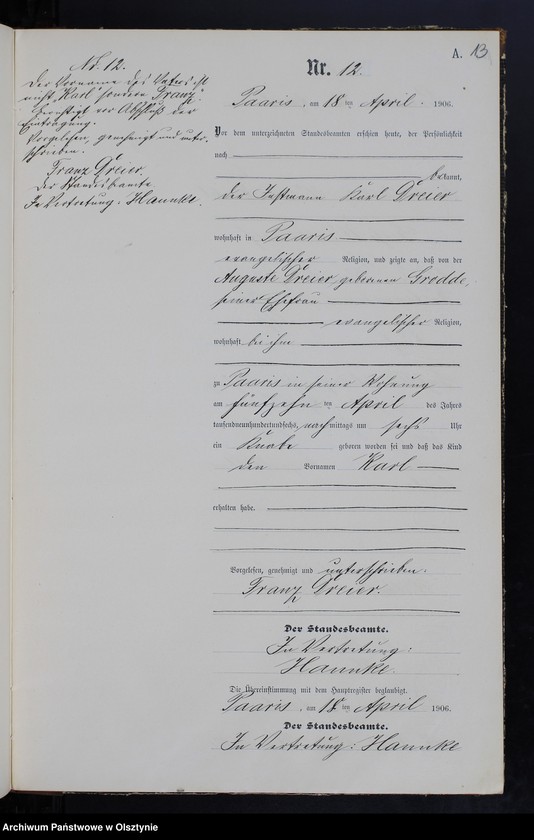 A. 13
Nr. 12.
Nr. 12.
Der Vorname des Vaters ist
nicht "Karl" sondern "Franz".
Berichtigt vor Abschluß der
Eintragung.
Vorgelesen, genehmigt und unter-
schrieben.
Franz Dreier.
Der Standesbeamte
In Vertretung: Hannke.
Paaris, am 18 ten April 1906.
Vor dem unterzeichneten Standesbeamten erschien heute, der Persönlichkeit
nach
bekannt,
der Instmann Karl Dreier
wohnhaft in Paaris
evangelischer Religion, und zeigte an, daß von der
Auguste Dreier, geborenen Grodde,
seiner Ehefrau
evangelischer Religion,
wohnhaft bei ihm
zu Paaris in seiner Wohnung
am fünfzehn ten April des Jahres
tausendneunhundertundsechs, nachmittags um sechs Uhr
ein Knabe geboren worden sei und daß das Kind
den Vornamen Karl
erhalten habe.
Vorgelesen, genehmigt und unterschrieben.
Franz Dreier.
Der Standesbeamte.
In Vertretung:
Hannke.
Die Übereinstimmung mit dem Hauptregister beglaubigt.
Paaris, am 18 ten April 1906.
Der Standesbeamte.
In Vertretung: Hannke
Archiwum Państwowe w Olsztynie